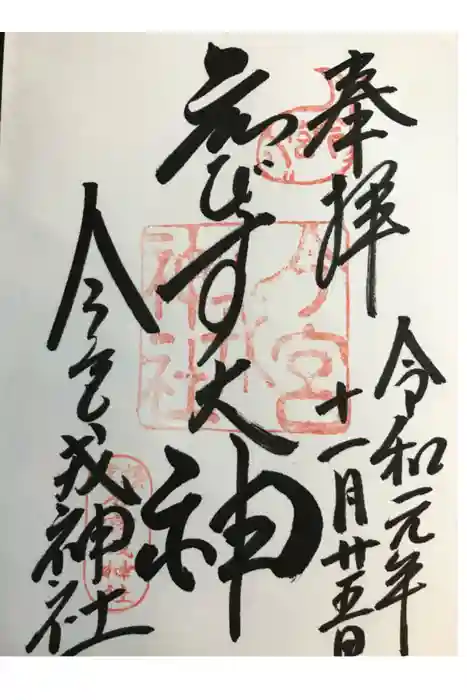 奉拝
令和元年
十一月廿五日
ゑびす大神
今宮戎神社
今宮
戎
神社